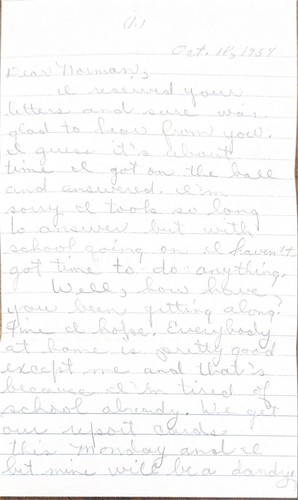 (1.)
Oct. 18, 1954
Dear Norman,
I received your
letters and sure was
glad to hear from you.
I guess it's about
time I got on the ball
and answered. I'm
sorry I took so long
to answer but with
school going on I haven't
got time to do anything.
Well, how have
you been getting along?
Fine I hope. Everybody
at home is pretty good
except me and that's
because I'm tired of
school already. We get
our report cards
this Monday and I
bet mine will be a dandy